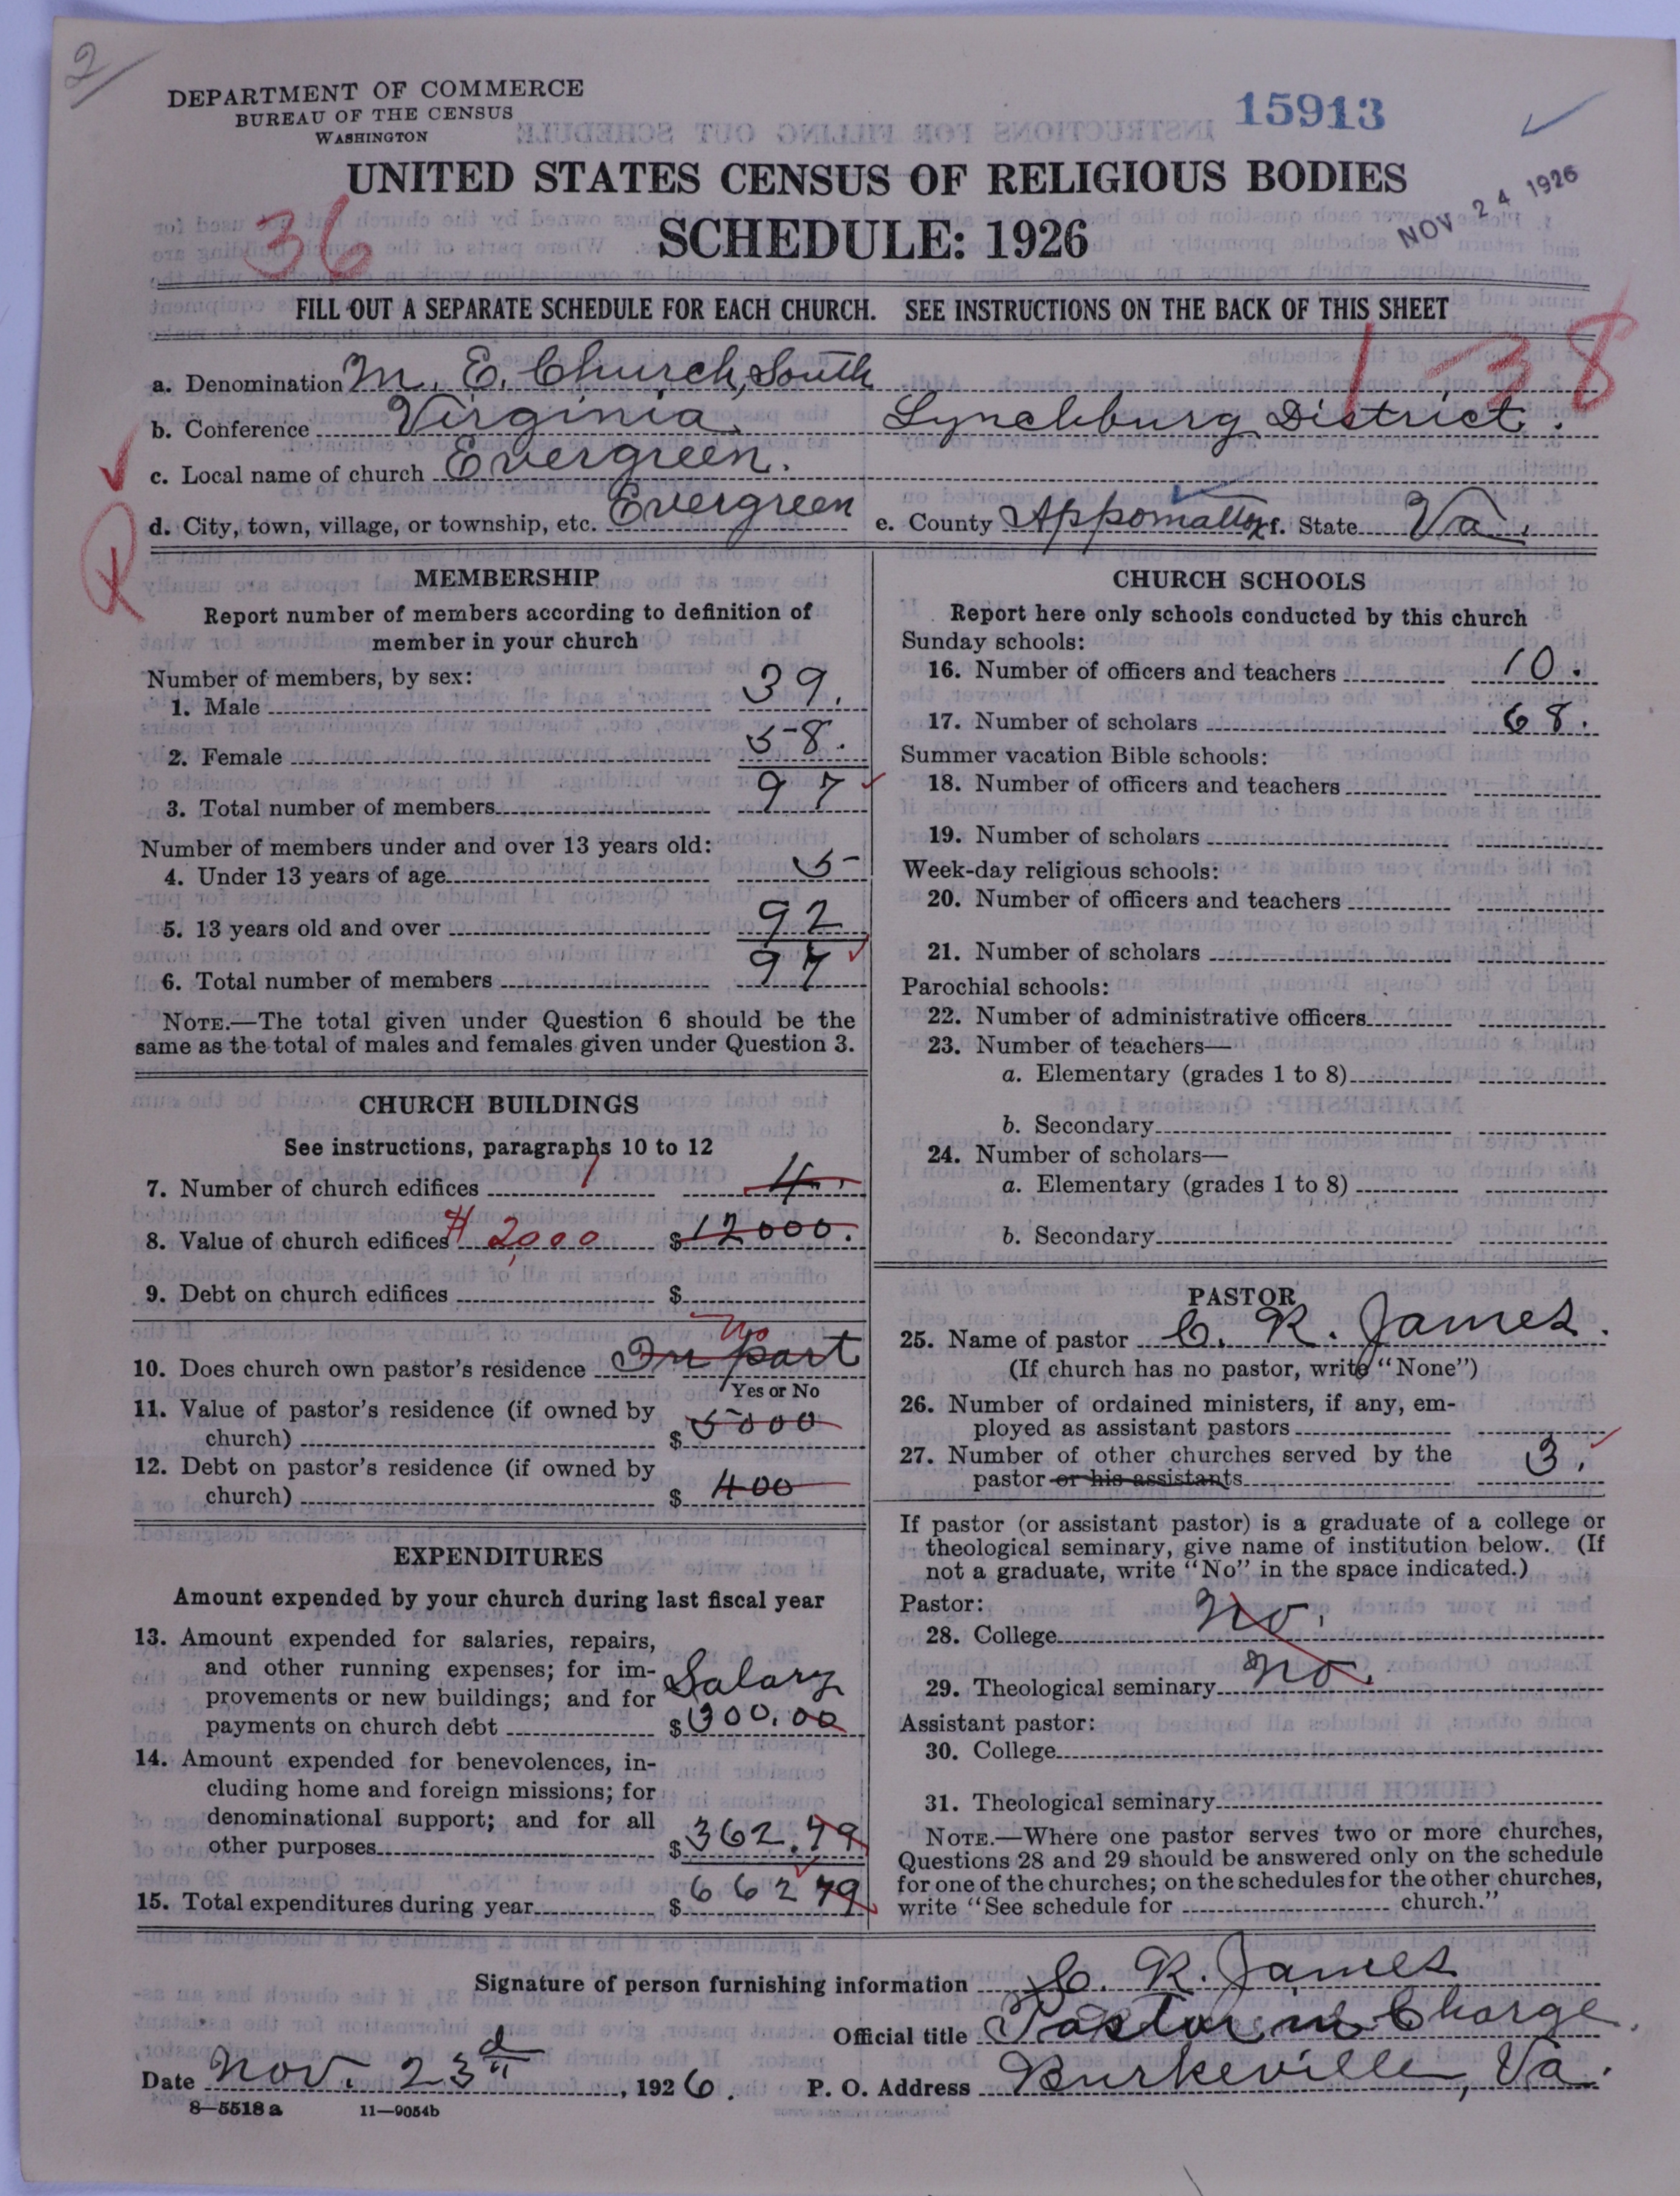 2
DEPARTMENT OF COMMERCE
BUREAU OF THE CENSUS
WASHINGTON
15913
NOV 24 1926
UNITED STATES CENSUS OF RELIGIOUS BODIES
SCHEDULE: 1926
36
FILL OUT A SEPARATE SCHEDULE FOR EACH CHURCH. SEE INSTRUCTIONS ON THE BACK OF THIS SHEET
1-38
a. Denomination M. E. Church, South
b. Conference Virginia. Lynchburg District.
c. Local name of church Evergreen.
d. City, town, village, or township, etc. Evergreen e. County Appomattox f. State Va.
MEMBERSHIP
Report number of members according to definition of
member in your church
Number of members, by sex:
1. Male 39.
2. Female 58.
3. Total number of members 97
Number of members under and over 13 years old:
4. Under 13 years of age 5
5. 13 years old and over 92
6. Total number of members 97
NOTE.—The total given under Question 6 should be the
same as the total of males and females given under Question 3.
CHURCH BUILDINGS
See instructions, paragraphs 10 to 12
7. Number of church edifices 1 4.
8. Value of church edifices # 2000 $ 12000.
9. Debt on church edifices $
No
10. Does church own pastor's residence In part
Yes or No
11. Value of pastor's residence (if owned by
church) $ 5000
12. Debt on pastor's residence (if owned by
church) $ 400
EXPENDITURES
Amount expended by your church during last fiscal year
13. Amount expended for salaries, repairs,
and other running expenses; for im-
provements or new buildings; and for Salary
payments on church debt $ 300.00
14. Amount expended for benevolences, in-
cluding home and foreign missions; for
denominational support; and for all
other purposes $ 362.79
15. Total expenditures during year $ 662 79
CHURCH SCHOOLS
Report here only schools conducted by this church
Sunday schools:
16. Number of officers and teachers 10.
17. Number of scholars 68.
Summer vacation Bible schools:
18. Number of officers and teachers
19. Number of scholars
Week-day religious schools:
20. Number of officers and teachers
21. Number of scholars
Parochial schools:
22. Number of administrative officers
23. Number of teachers—
a. Elementary (grades 1 to 8)
b. Secondary
24. Number of scholars—
a. Elementary (grades 1 to 8)
b. Secondary
PASTOR
25. Name of pastor C. R. James.
(If church has no pastor, write "None")
26. Number of ordained ministers, if any, em-
ployed as assistant pastors
27. Number of other churches served by the
pastor or his assistants 3.
If pastor (or assistant pastor) is a graduate of a college or
theological seminary, give name of institution below. (If
not a graduate, write "No" in the space indicated.)
Pastor:
28. College No.
29. Theological seminary No.
Assistant pastor:
30. College
31. Theological seminary
NOTE.—Where one pastor serves two or more churches,
Questions 28 and 29 should be answered only on the schedule
for one of the churches; on the schedules for the other churches,
write "See schedule for church."
Signature of person furnishing information C. R. James
Official title Pastor in Charge.
Date Nov. 23d, 1926. P. O. Address Burkeville, Va.
8—5518 a 11—9054b